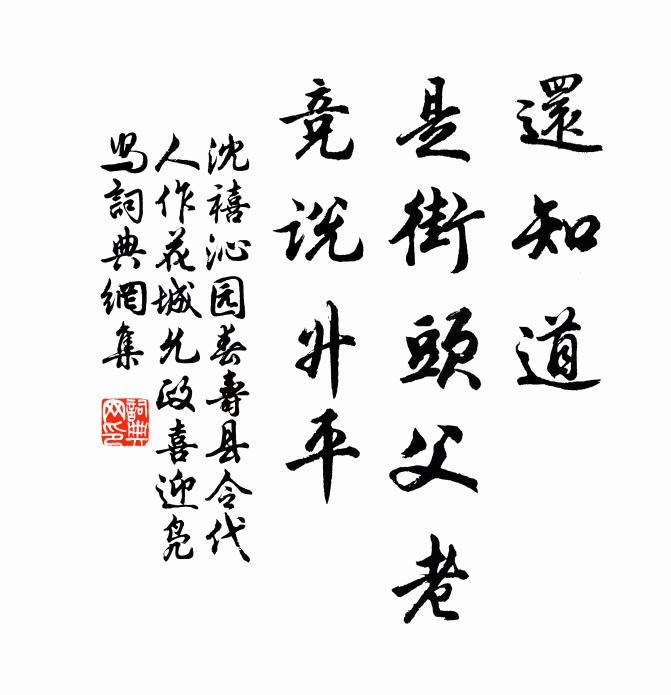 還知道
是街頭父老
竞说升平
沈禧沁园春壽县令代
人作花城允政喜迎凫
舄詞典網集
詞典
网印